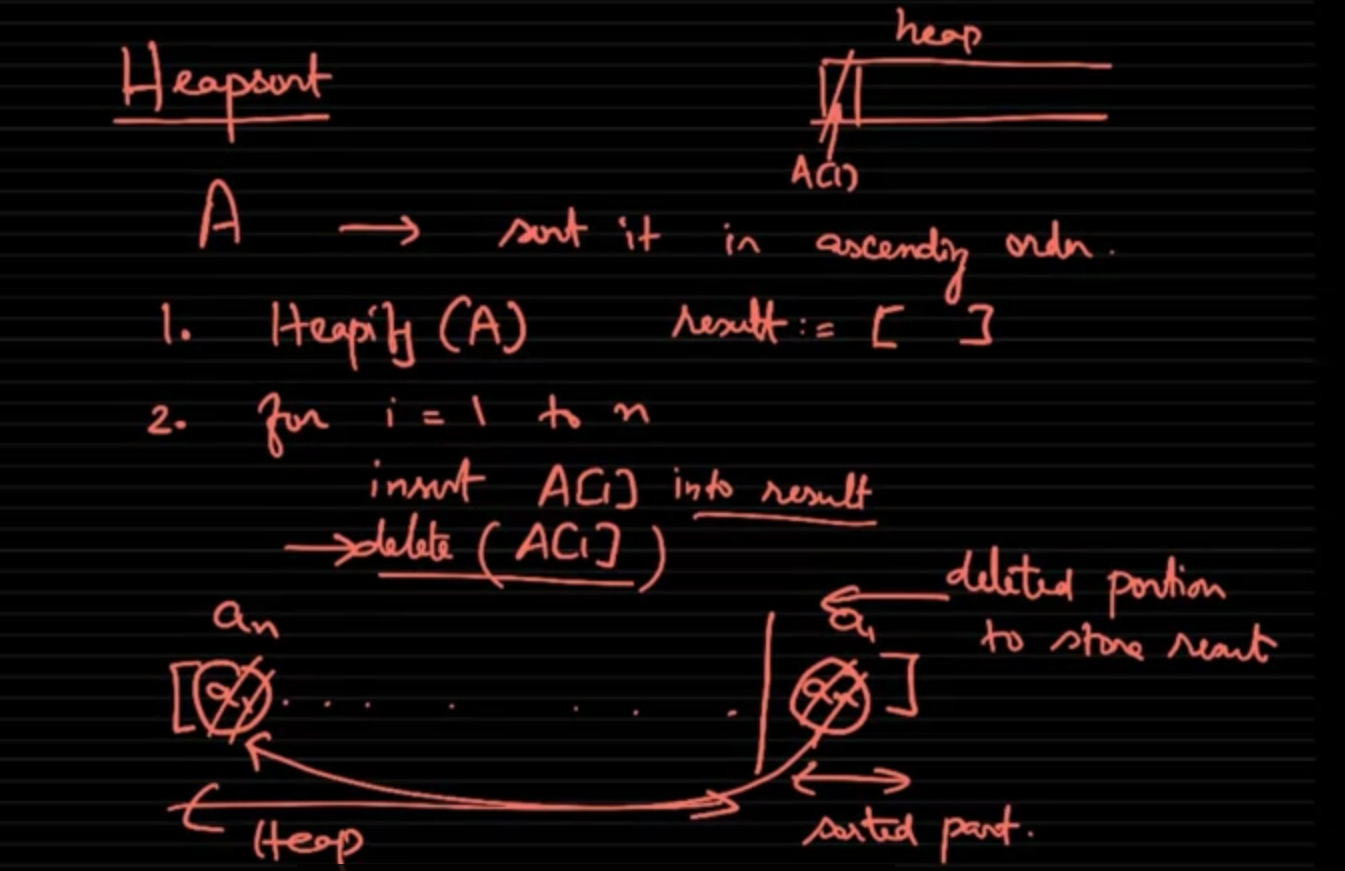 heap
Heapsort
A[1]
A → sort it in ascending order.
1. Heapify (A) result := [ ]
2. for i = 1 to n
insert A[1] into result
→ delete (A[1])
← deleted portion
to store result
aₙ a₁
[ . . . . . . . ]
Heap
sorted part.